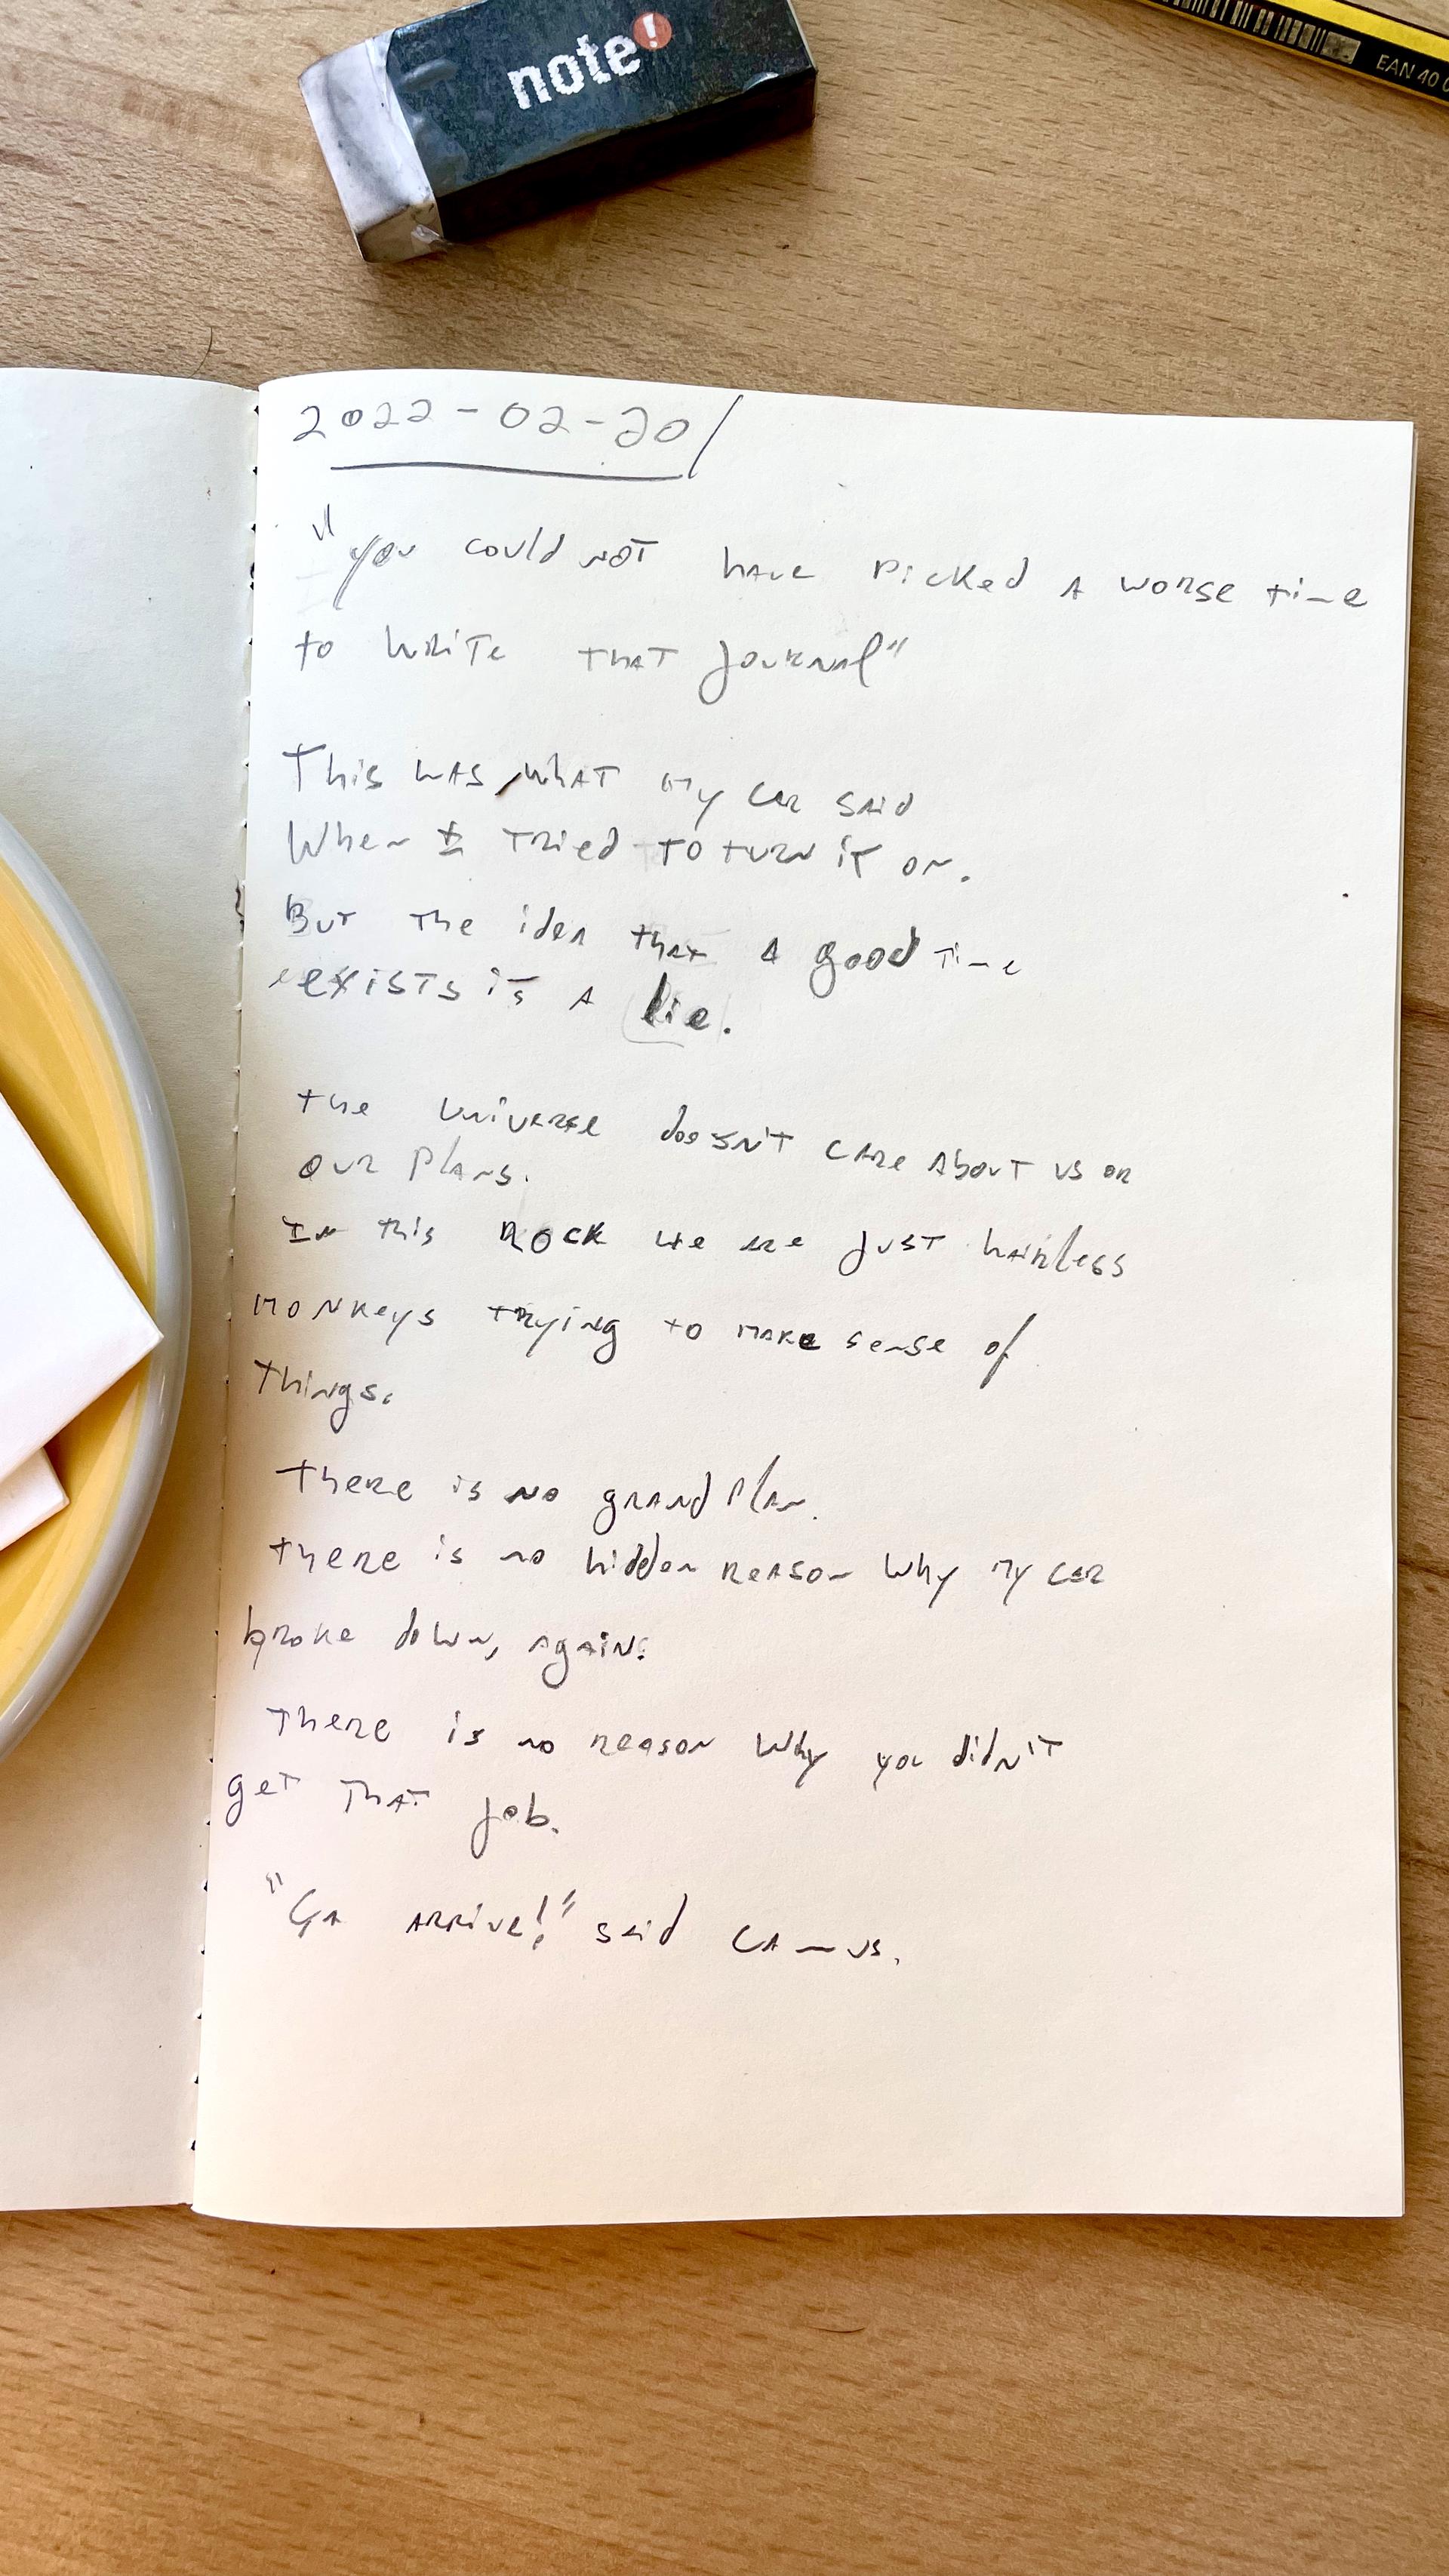 note!
EAN 40 0
2022-02-20/
"you could not have picked a worse time
to write that journal"
This was what my car said
When I tried to turn it on.
But the idea that a good time
exists is a lie.
the universe doesn't care about us or
our plans.
In this rock we are just hairless
monkeys trying to make sense of
things.
there is no grand plan.
there is no hidden reason why my car
broke down, again.
There is no reason why you didn't
get that job.
"Ça arrive!" said Camus.